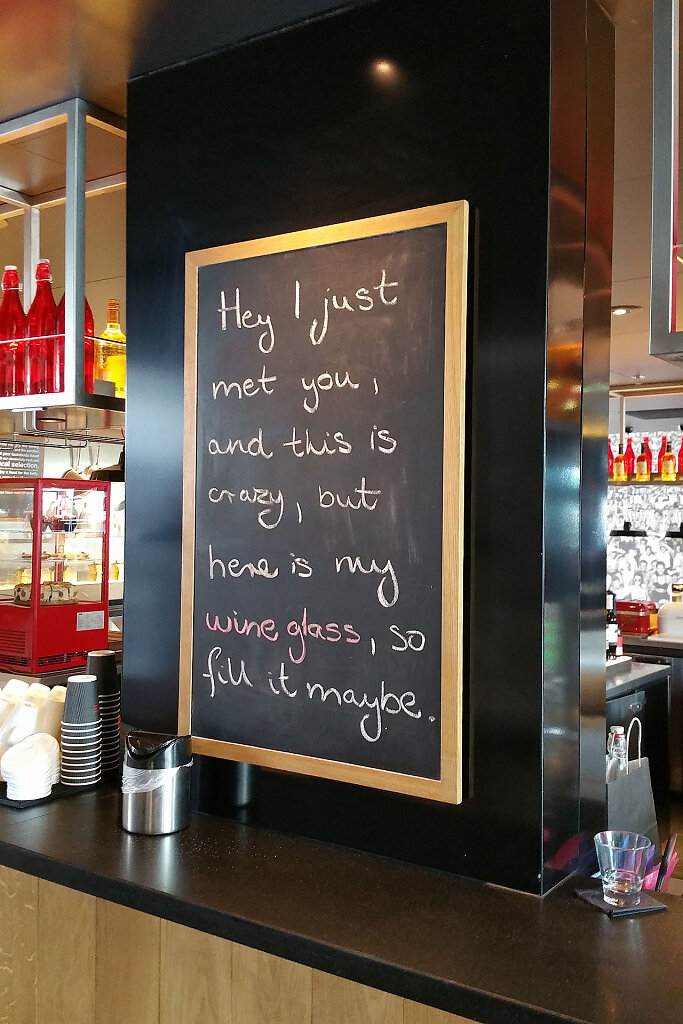 Hey I just
met you,
and this is
crazy, but
here is my
wine glass, so
fill it maybe.